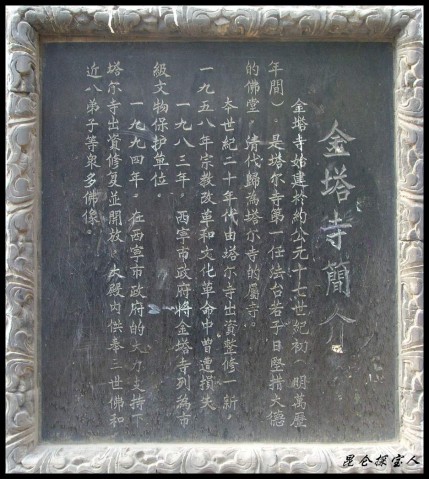 金塔寺簡介
金塔寺始建於約公元十七世紀初(明萬歷
年間)。是塔尔寺第一任法台若子日堅措大德
的佛堂,清代歸為塔尔寺的屬寺。
本世紀二十年代由塔尔寺出資整修一新,
一九五八年宗教改革和文化革命中曾遭損失
一九八三年,西寧市政府將金塔寺列為市
級文物保护单位。
一九九四年,在西寧市政府的大力支持下
塔尔寺出資修复並開放,大殿内供奉三世佛和
近八弟子等衆多佛像。
昆仑探宝人